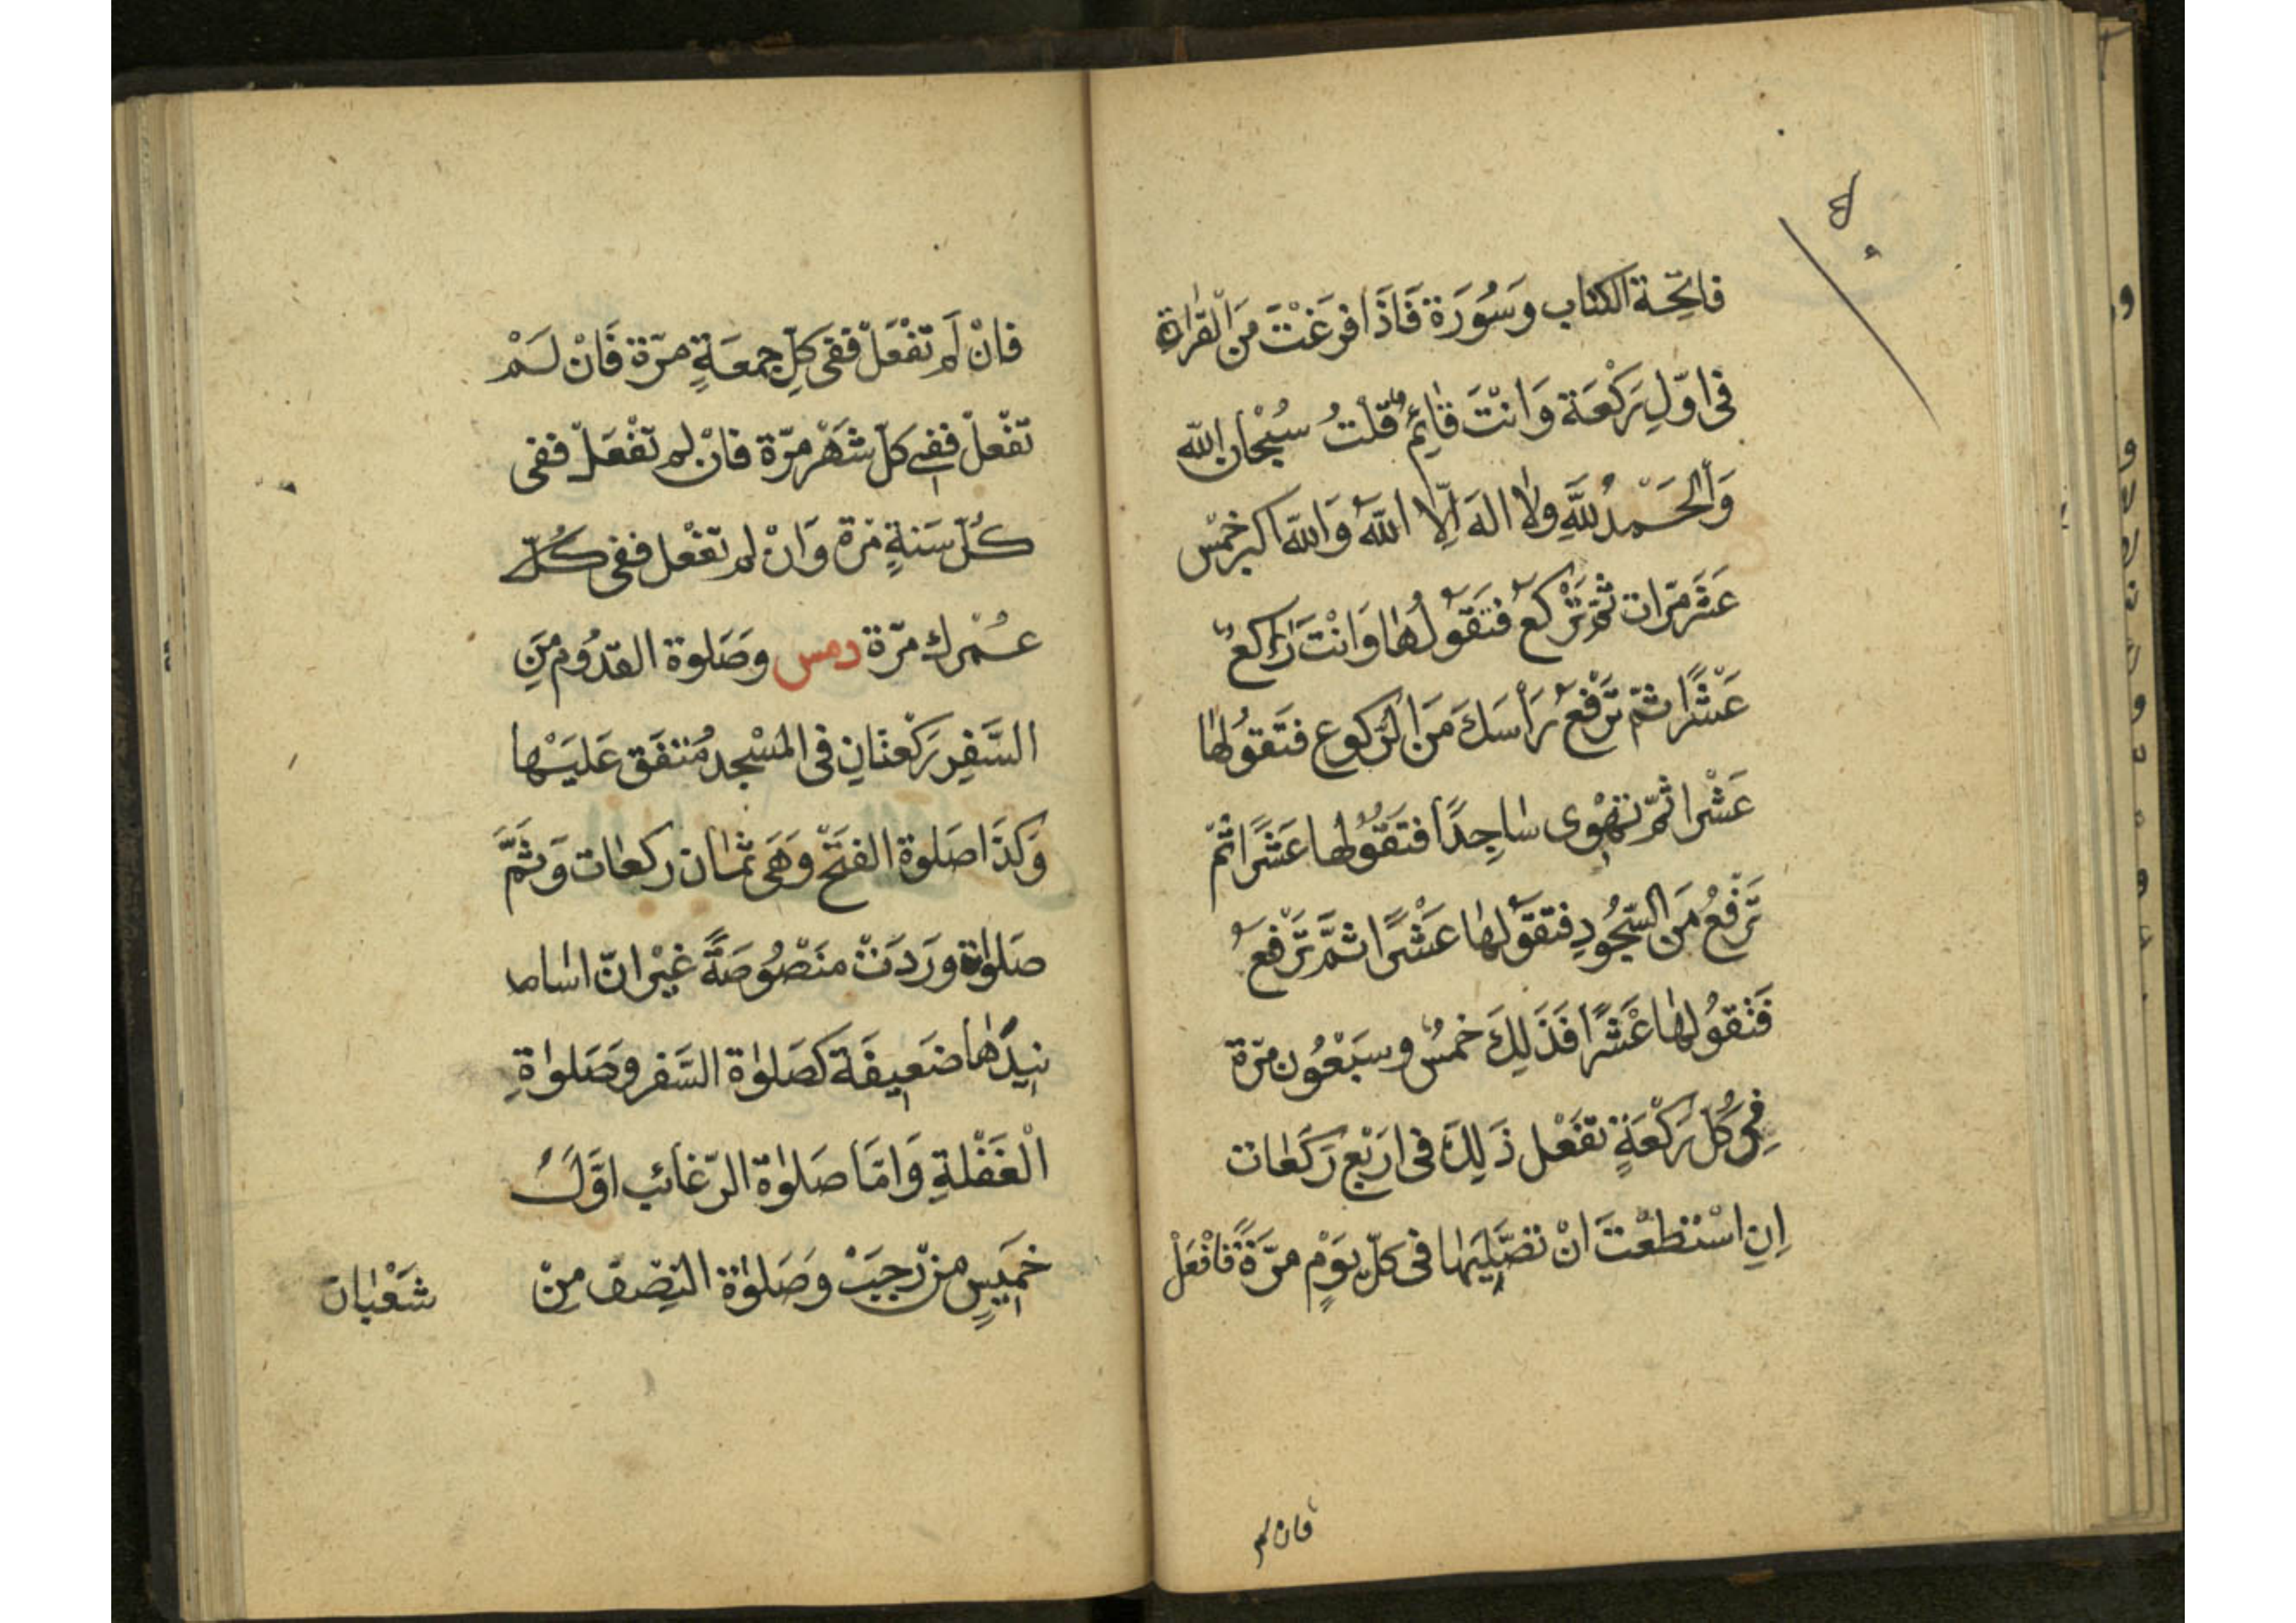 فاتِحَة الكتاب وَسُوَرَة فَاذَا فرَغْتَ مَن القراءةِ
فى اوّلِ رَكْعَة وَانْتَ قٰائِمٌ قلْتُ سُبْحٰان الله
وَالحَمْدُ للهِ وَلا الهَ اِلّا اللهُ وَالله اكبر خمْس
عَشَر مَرّات ثمّ تَرْكَعُ فتَقوُلُهٰا وَانْتَ رٰاكِعٌ
عَشْرًا ثمّ تَرْفَعُ رَأسَكَ مَنَ الرّكوع فتَقوُلهٰا
عَشْرا ثمّ تهْوِى سٰاجِدًا فتَقوُلُها عَشْرًا ثمّ
تَرْفَعُ مَن السّجُودِ فتقَوُلهٰا عَشْرًا ثمَّ تَرْفعُ
فَتَقوُلهٰا عَشْرًا فَذَلِكَ خمسٌ وسَبْعُون مرّة
فِى كُلّ رَكْعَةٍ تفَعْل ذَلِكَ فى ارَبْع رَكَعٰات
اِنِ اسْتَطعْتَ انْ تصَلِّيَهٰا فى كلّ يوَمٍ مرّةً فَافْعَلْ
فان لم
فانْ لَم تَفْعَلْ ففى كلّ جمعَةٍ مرّة فَانْ لَمْ
تَفْعلْ ففى كلّ شَهْر مرّة فانْ لم تَفْعَلْ ففى
كُلّ سَنةٍ مَرة وَانْ لم تفْعل ففى كُلّ
عُمْرك مرّة دمس وصَلوة القدُوم مِنَ
السَّفِر رَكْعتَانِ فى المسْجد مُتفَق عَليَهْا
وَكذَا صَلوة الفتَحْ وَهَى ثمٰان ركعٰات وَثمَّ
صَلوٰة ورَدَتْ منَصْوُصَةً غيْر انّ اسٰا
نيِدَهٰا ضَعيِفَة كصَلوٰة السَّفر وصَلوٰةِ
الْغَفْلةِ وَامّا صَلوٰة الرّغائب اوّلَ
خمَيسٍ من رّجبَْ وصَلوٰة النصْف منْ
شَعْبٰان